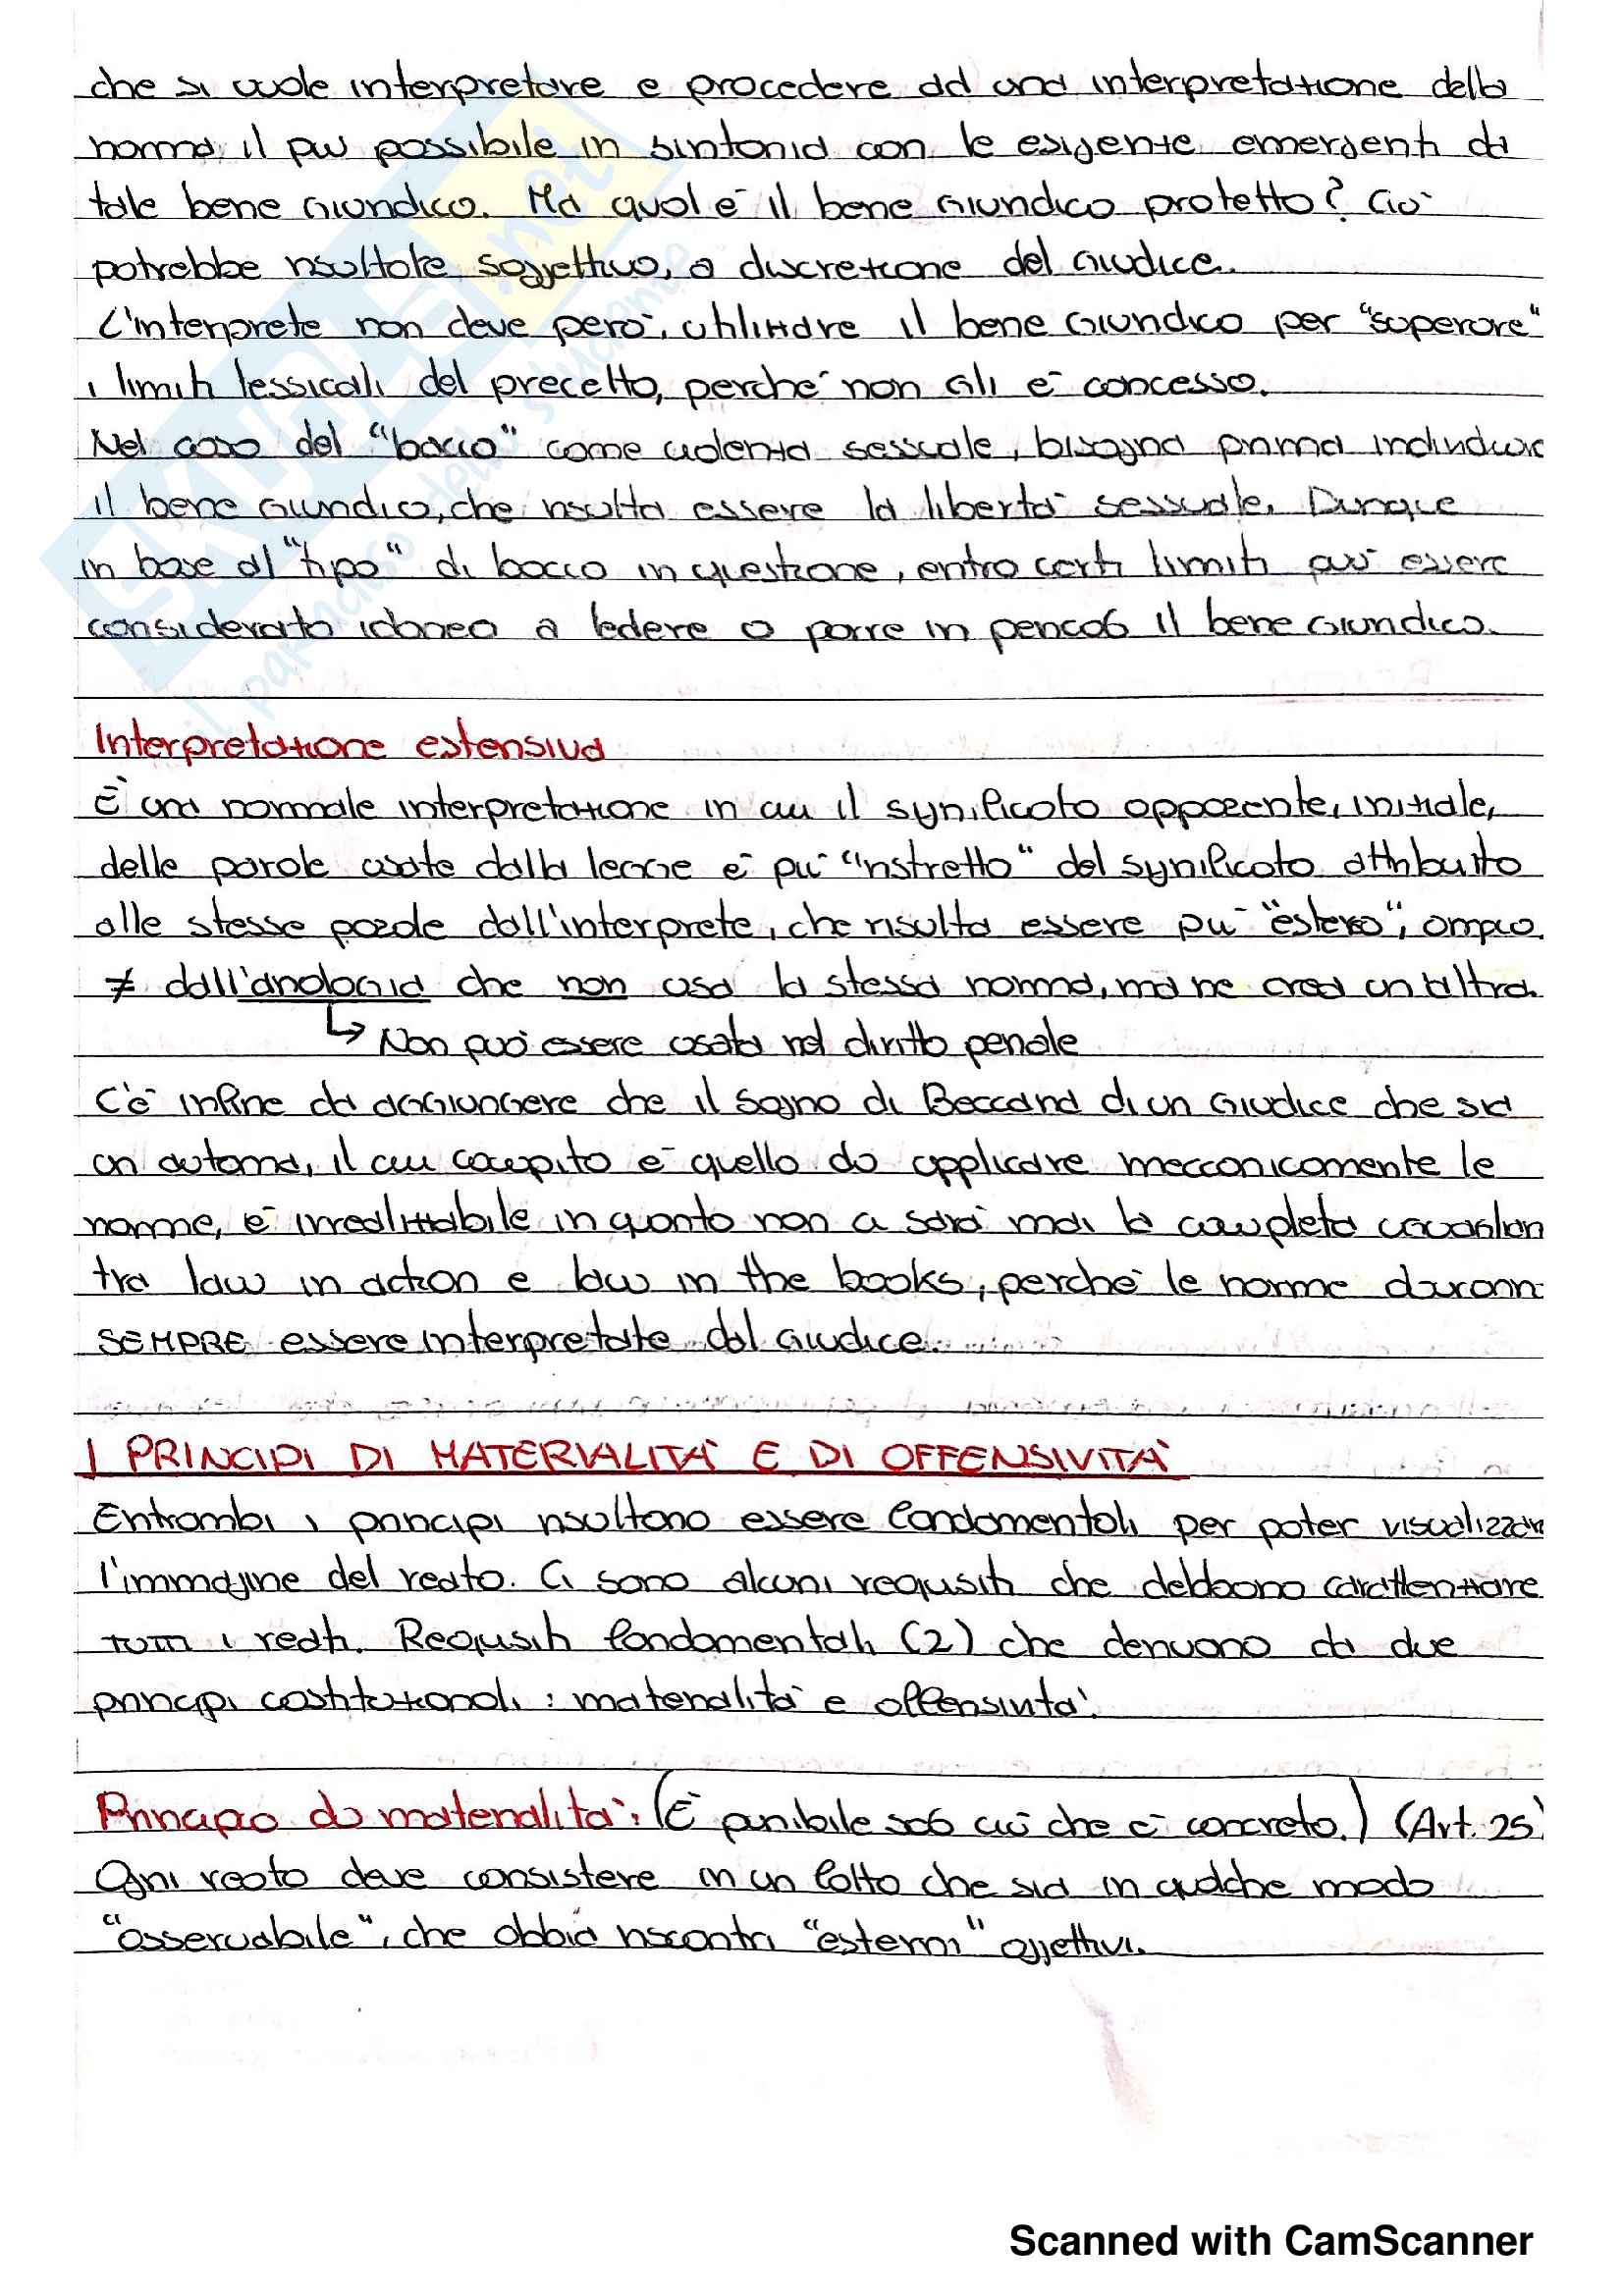 che si vuole interpretare e procedere ad una interpretazione della
norma il più possibile in sintonia con le esigenze emergenti da
tale bene giuridico. Ma qual è il bene giuridico protetto? Ciò
potrebbe risultare soggettivo, a discrezione del giudice.
L'interprete non deve però, utilizzare il bene giuridico per "superare"
i limiti lessicali del precetto, perché non gli è concesso.
Nel caso del "bacio" come violenza sessuale, bisogna prima individuare
il bene giuridico, che risulta essere la libertà sessuale. Dunque
in base al "tipo" di bacio in questione, entro certi limiti può essere
considerato idoneo a ledere o porre in pericolo il bene giuridico.
Interpretazione estensiva
È una normale interpretazione in cui il significato apparente, iniziale,
delle parole usate dalla legge è più "ristretto" del significato attribuito
alle stesse parole dall'interprete, che risulta essere più "esteso", ampio.
≠ dall'analogia che non usa la stessa norma, ma ne crea un'altra.
↳ Non può essere usata nel diritto penale
C'è infine da aggiungere che il sogno di Beccaria di un giudice che sia
un automa, il cui compito è quello di applicare meccanicamente le
norme, è irrealizzabile in quanto non ci sarà mai la completa
tra law in action e law in the books, perché le norme dovrann
SEMPRE essere interpretate dal giudice.
I PRINCIPI DI MATERIALITÀ E DI OFFENSIVITÀ
Entrambi i principi risultano essere fondamentali per poter visualizzare
l'immagine del reato. Ci sono alcuni requisiti che debbono caratterizzare
tutti i reati. Requisiti fondamentali (2) che derivano da due
principi costituzionali: materialità e offensività.
Principio di materialità: (È punibile solo ciò che è concreto.) (Art. 25)
Ogni reato deve consistere in un fatto che sia in qualche modo
"osservabile", che abbia riscontri "esterni" oggettivi.
Scanned with CamScanner
SKUOLA.net
il paradiso dello studente